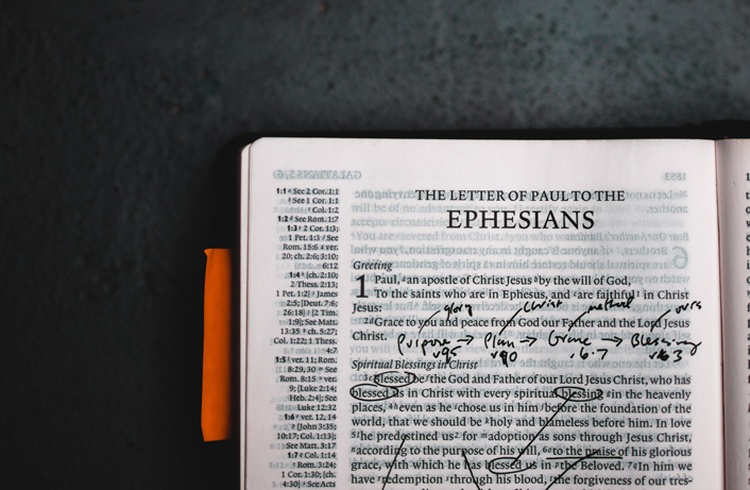 THE LETTER OF PAUL TO THE
EPHESIANS
Greeting
1 Paul, an apostle of Christ Jesus by the will of God,
To the saints who are in Ephesus, and are faithful in Christ
Jesus:
glory Christ method ours
Grace to you and peace from God our Father and the Lord Jesus
Christ.
Purpose → Plan → Grace → Blessing
v. 6-7 v. 3
Spiritual Blessings in Christ
Blessed be the God and Father of our Lord Jesus Christ, who has
blessed us in Christ with every spiritual blessing in the heavenly
places, even as he chose us in him before the foundation of the
world, that we should be holy and blameless before him. In love
he predestined us for adoption as sons through Jesus Christ,
according to the purpose of his will, to the praise of his glorious
grace, with which he has blessed us in the Beloved. In him we
have redemption through his blood, the forgiveness of our tres-
1:1 See 2 Cor. 1:1
See 1 Cor. 1:1
Col. 1:2
1:2 See Rom. 1:7
1:3 2 Cor. 1:3;
1 Pet. 1:3 See
Rom. 15:6 ver.
20; ch. 2:6; 3:10;
6:12
1:4 [ch. 2:10;
2 Thess. 2:13;
1 Pet. 1:2] James
2:5; [Deut. 7:6;
26:18] [2 Tim.
1:9]; See Matt.
13:35 ch. 5:27;
Col. 1:22; 1 Thess.
4:7
1:5 ver. 11; Rom.
8:29, 30 See
Rom. 8:15 ver.
9; [Luke 2:14;
Heb. 2:4]; See
Luke 12:32
1:6 ver. 12, 14
[John 3:35;
10:17; Col. 1:13];
See Matt. 3:17
1:7 Col. 1:14
Rom. 3:24;
1 Cor. 1:30; [ch.
4:30] See Acts